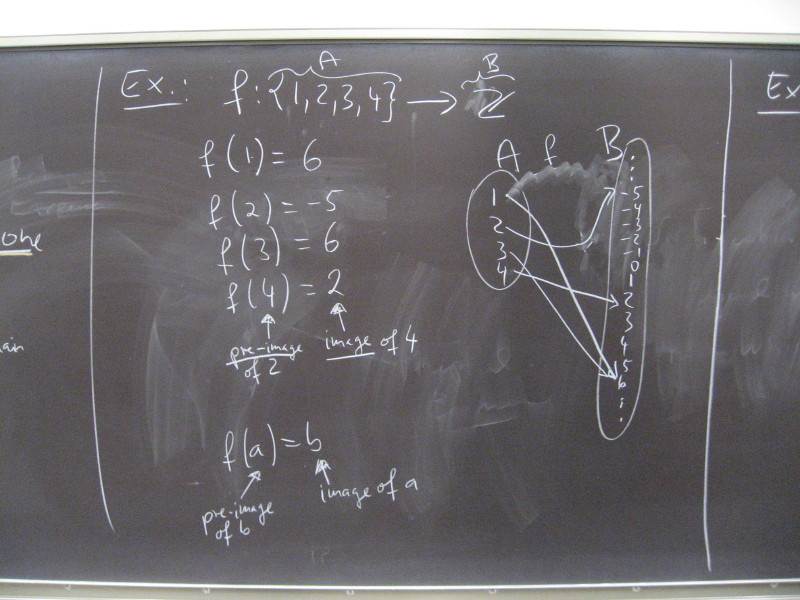 one
ain
Ex.:
A
B
f: {1,2,3,4} → ℤ
f(1) = 6
f(2) = -5
f(3) = 6
f(4) = 2
pre-image of 2
image of 4
f(a) = b
pre-image of b
image of a
A f B
1
2
3
4
:
-5
-4
-3
-2
-1
0
1
2
3
4
5
6
:
Ex